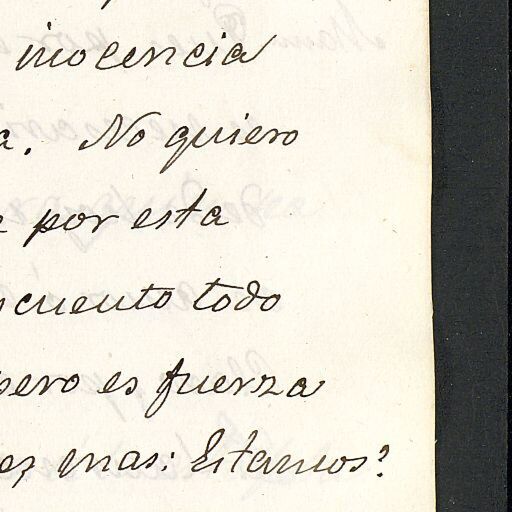 inocencia
a. No quiero
e por esta
cuento todo
pero es fuerza
ez mas: Estamos?